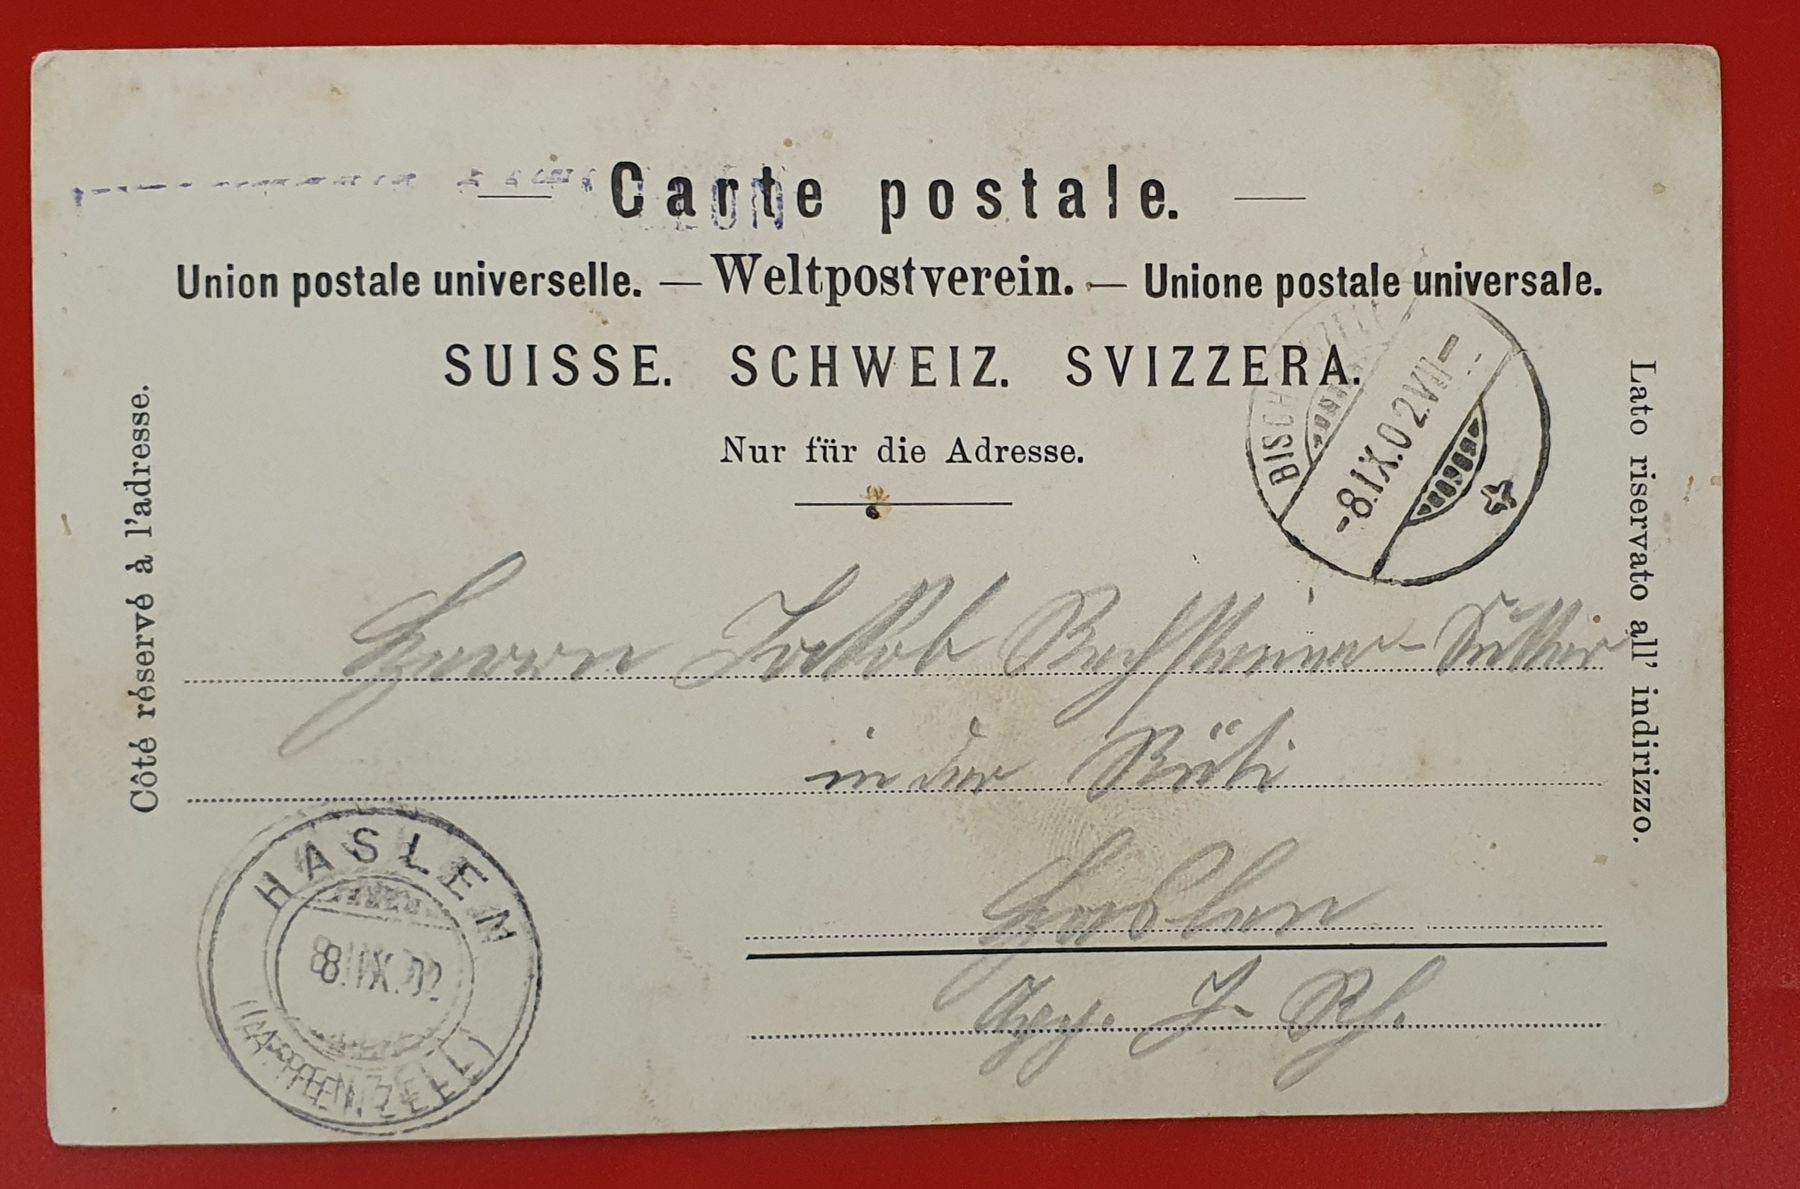 Carte postale.
Union postale universelle. — Weltpostverein. — Unione postale universale.
SUISSE. SCHWEIZ. SVIZZERA.
Nur für die Adresse.
Côté réservé à l'adresse.
Lato riservato all' indirizzo.
BISCHOFSZELL
-8.IX.02.VII-
Herrn Jakob Rechsteiner-Sutter
in der Rüti
Haslen
App. I. Rh.
HASLEN
8.IX.02
(APPENZELL)